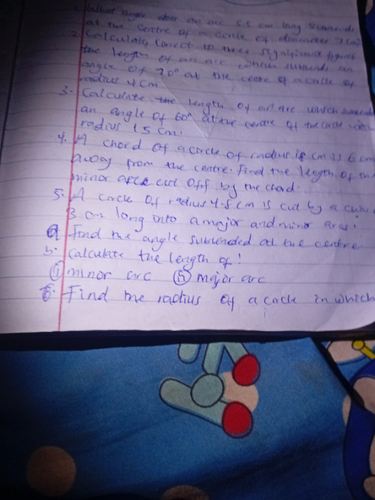 1. What angle does an arc 5.5 cm long subtends
at the centre of a circle of diameter 7cm
2. Calculate, correct to three significant figures
the length of an arc which subtends an
angle of 70° at the centre of a circle of
radius 4cm
3. Calculate the length of an arc which
an angle of 60° at the centre of the circle
radius 15cm.
4. A chord of a circle of radius cm is 6 cm
away from the centre. Find the length of the
minor arc cut off by the chord.
5. A circle of radius 4.5 cm is cut by a
3 cm long into a major and minor arcs.
a. Find the angle subtended at the centre
b. Calculate the length of:
(i) minor arc (ii) major arc
6. Find the radius of a circle in which